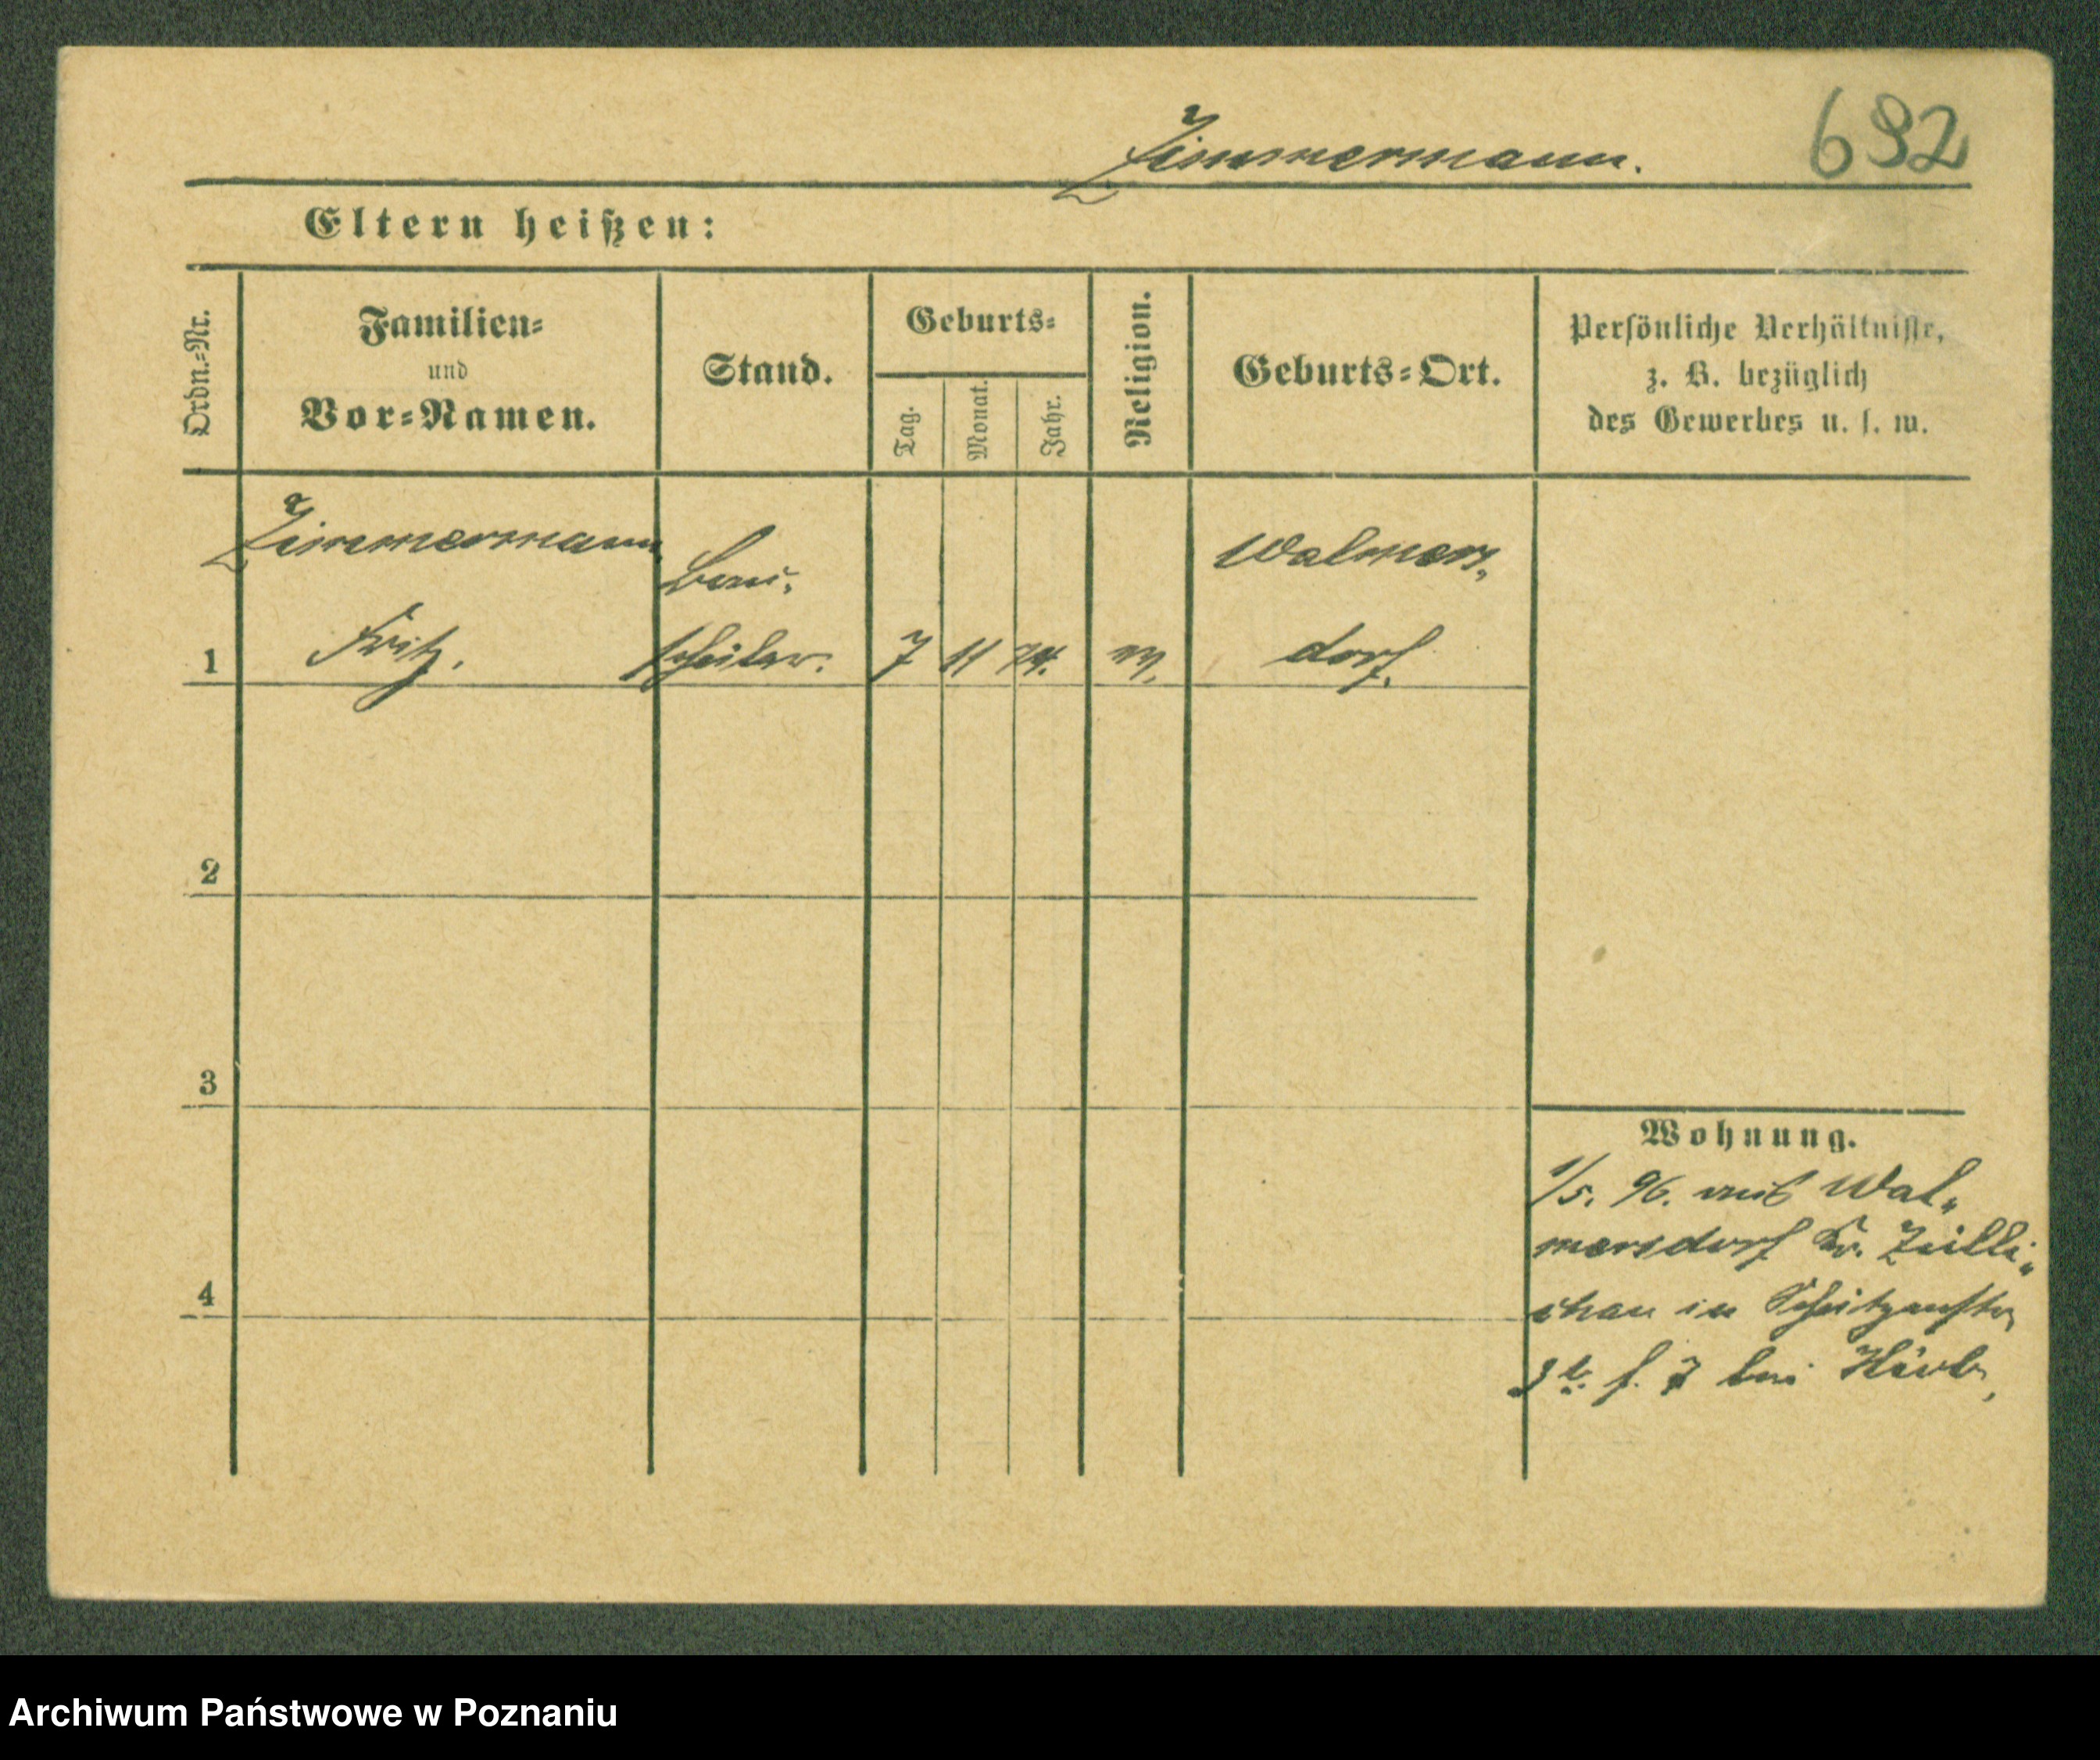 Zimmermann.
632
Eltern heißen:
Ordn.=Nr.
Familien=
und
Vor=Namen.
Stand.
Geburts=
Tag.
Monat.
Jahr.
Religion.
Geburts=Ort.
Persönliche Verhältnisse,
z. B. bezüglich
des Gewerbes u. s. w.
Zimmermann
Fritz.
Bau-
schüler.
7 11 74.
Walmers-
dorf.
1
2
3
4
Wohnung.
1/5. 96. aus Wal-
mersdorf Kr. Zülli-
chau in
bei
Archiwum Państwowe w Poznaniu